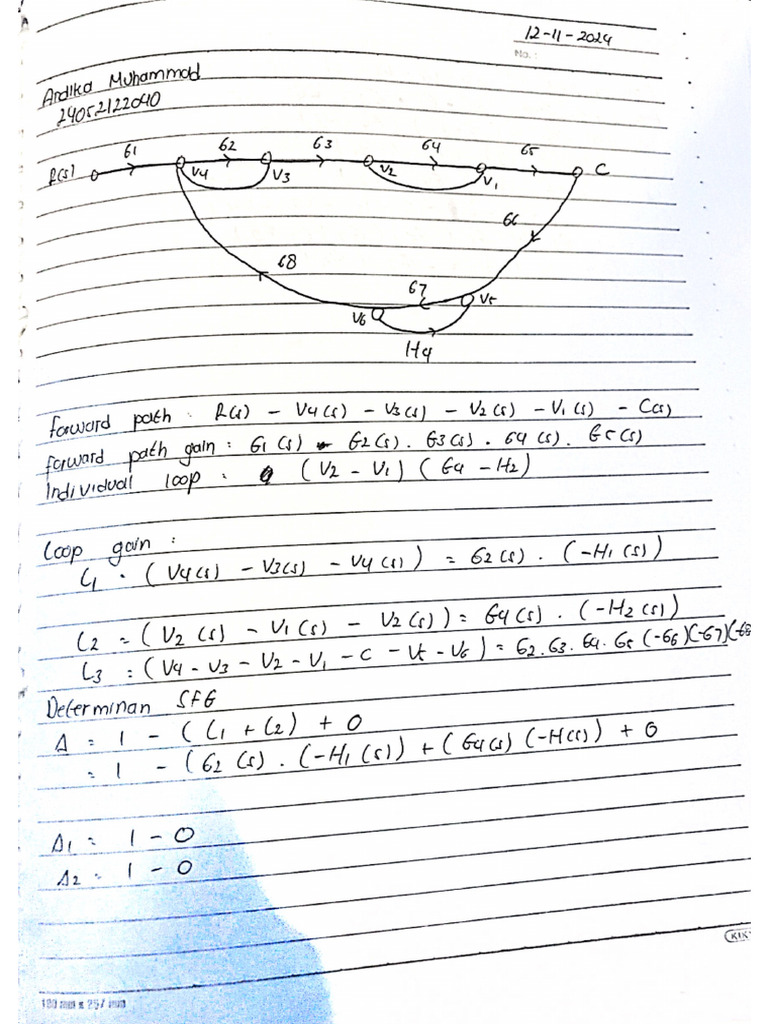 12-11-2024
No. :
Ardika Muhammad
24052122040
G1 G2 G3 G4 G5
R(s) V4 V3 V2 V1 C
G6
G8
G7 V5
V6
H4
forward path : R(s) - V4(s) - V3(s) - V2(s) - V1(s) - C(s)
forward path gain : G1(s) - G2(s) . G3(s) . G4(s) . G5(s)
Individual loop : (V2 - V1) (G4 - H2)
Loop gain :
L1 = (V4(s) - V3(s) - V4(s)) = G2(s) . (-H1(s))
L2 = (V2(s) - V1(s) - V2(s)) = G4(s) . (-H2(s))
L3 = (V4 - V3 - V2 - V1 - C - V5 - V6) = G2.G3.G4.G5(-G6)(-G7)(-G8
Determinan SFG
Δ = 1 - (L1 + L2) + 0
= 1 - (G2(s) . (-H1(s)) + (G4(s)(-H(s)) + 0
Δ1 = 1 - 0
Δ2 = 1 - 0
KIK
180 mm x 257 mm